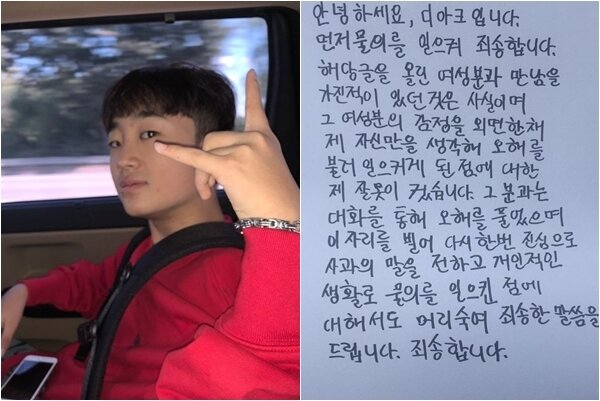 안녕하세요, 디아크입니다.
먼저 물의를 일으켜 죄송합니다.
해당글을 올린 여성분과 만남을
가진적이 있던것은 사실이며
그 여성분의 감정을 외면한채
제 자신만을 생각해 오해를
불러 일으키게 된 점에 대한
제 잘못이 컸습니다. 그 분과는
대화를 통해 오해를 풀었으며
이 자리를 빌어 다시 한번 진심으로
사과의 말을 전하고 개인적인
생활로 물의를 일으킨 점에
대해서도 머리숙여 죄송한 말씀을
드립니다. 죄송합니다.